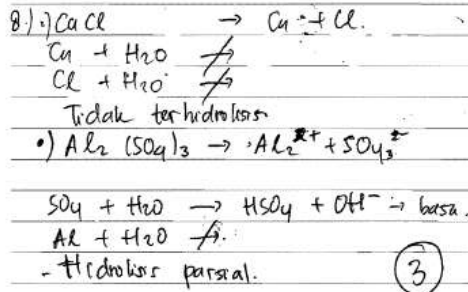 8.) •) CaCl → Ca + Cl.
Ca + H2O ↛
Cl + H2O ↛
Tidak terhidrolisis
•) Al2 (SO4)3 → Al2²⁺ + SO4 3²⁻
SO4 + H2O → HSO4 + OH⁻ → basa.
Al + H2O ↛.
- Hidrolisis parsial.
3